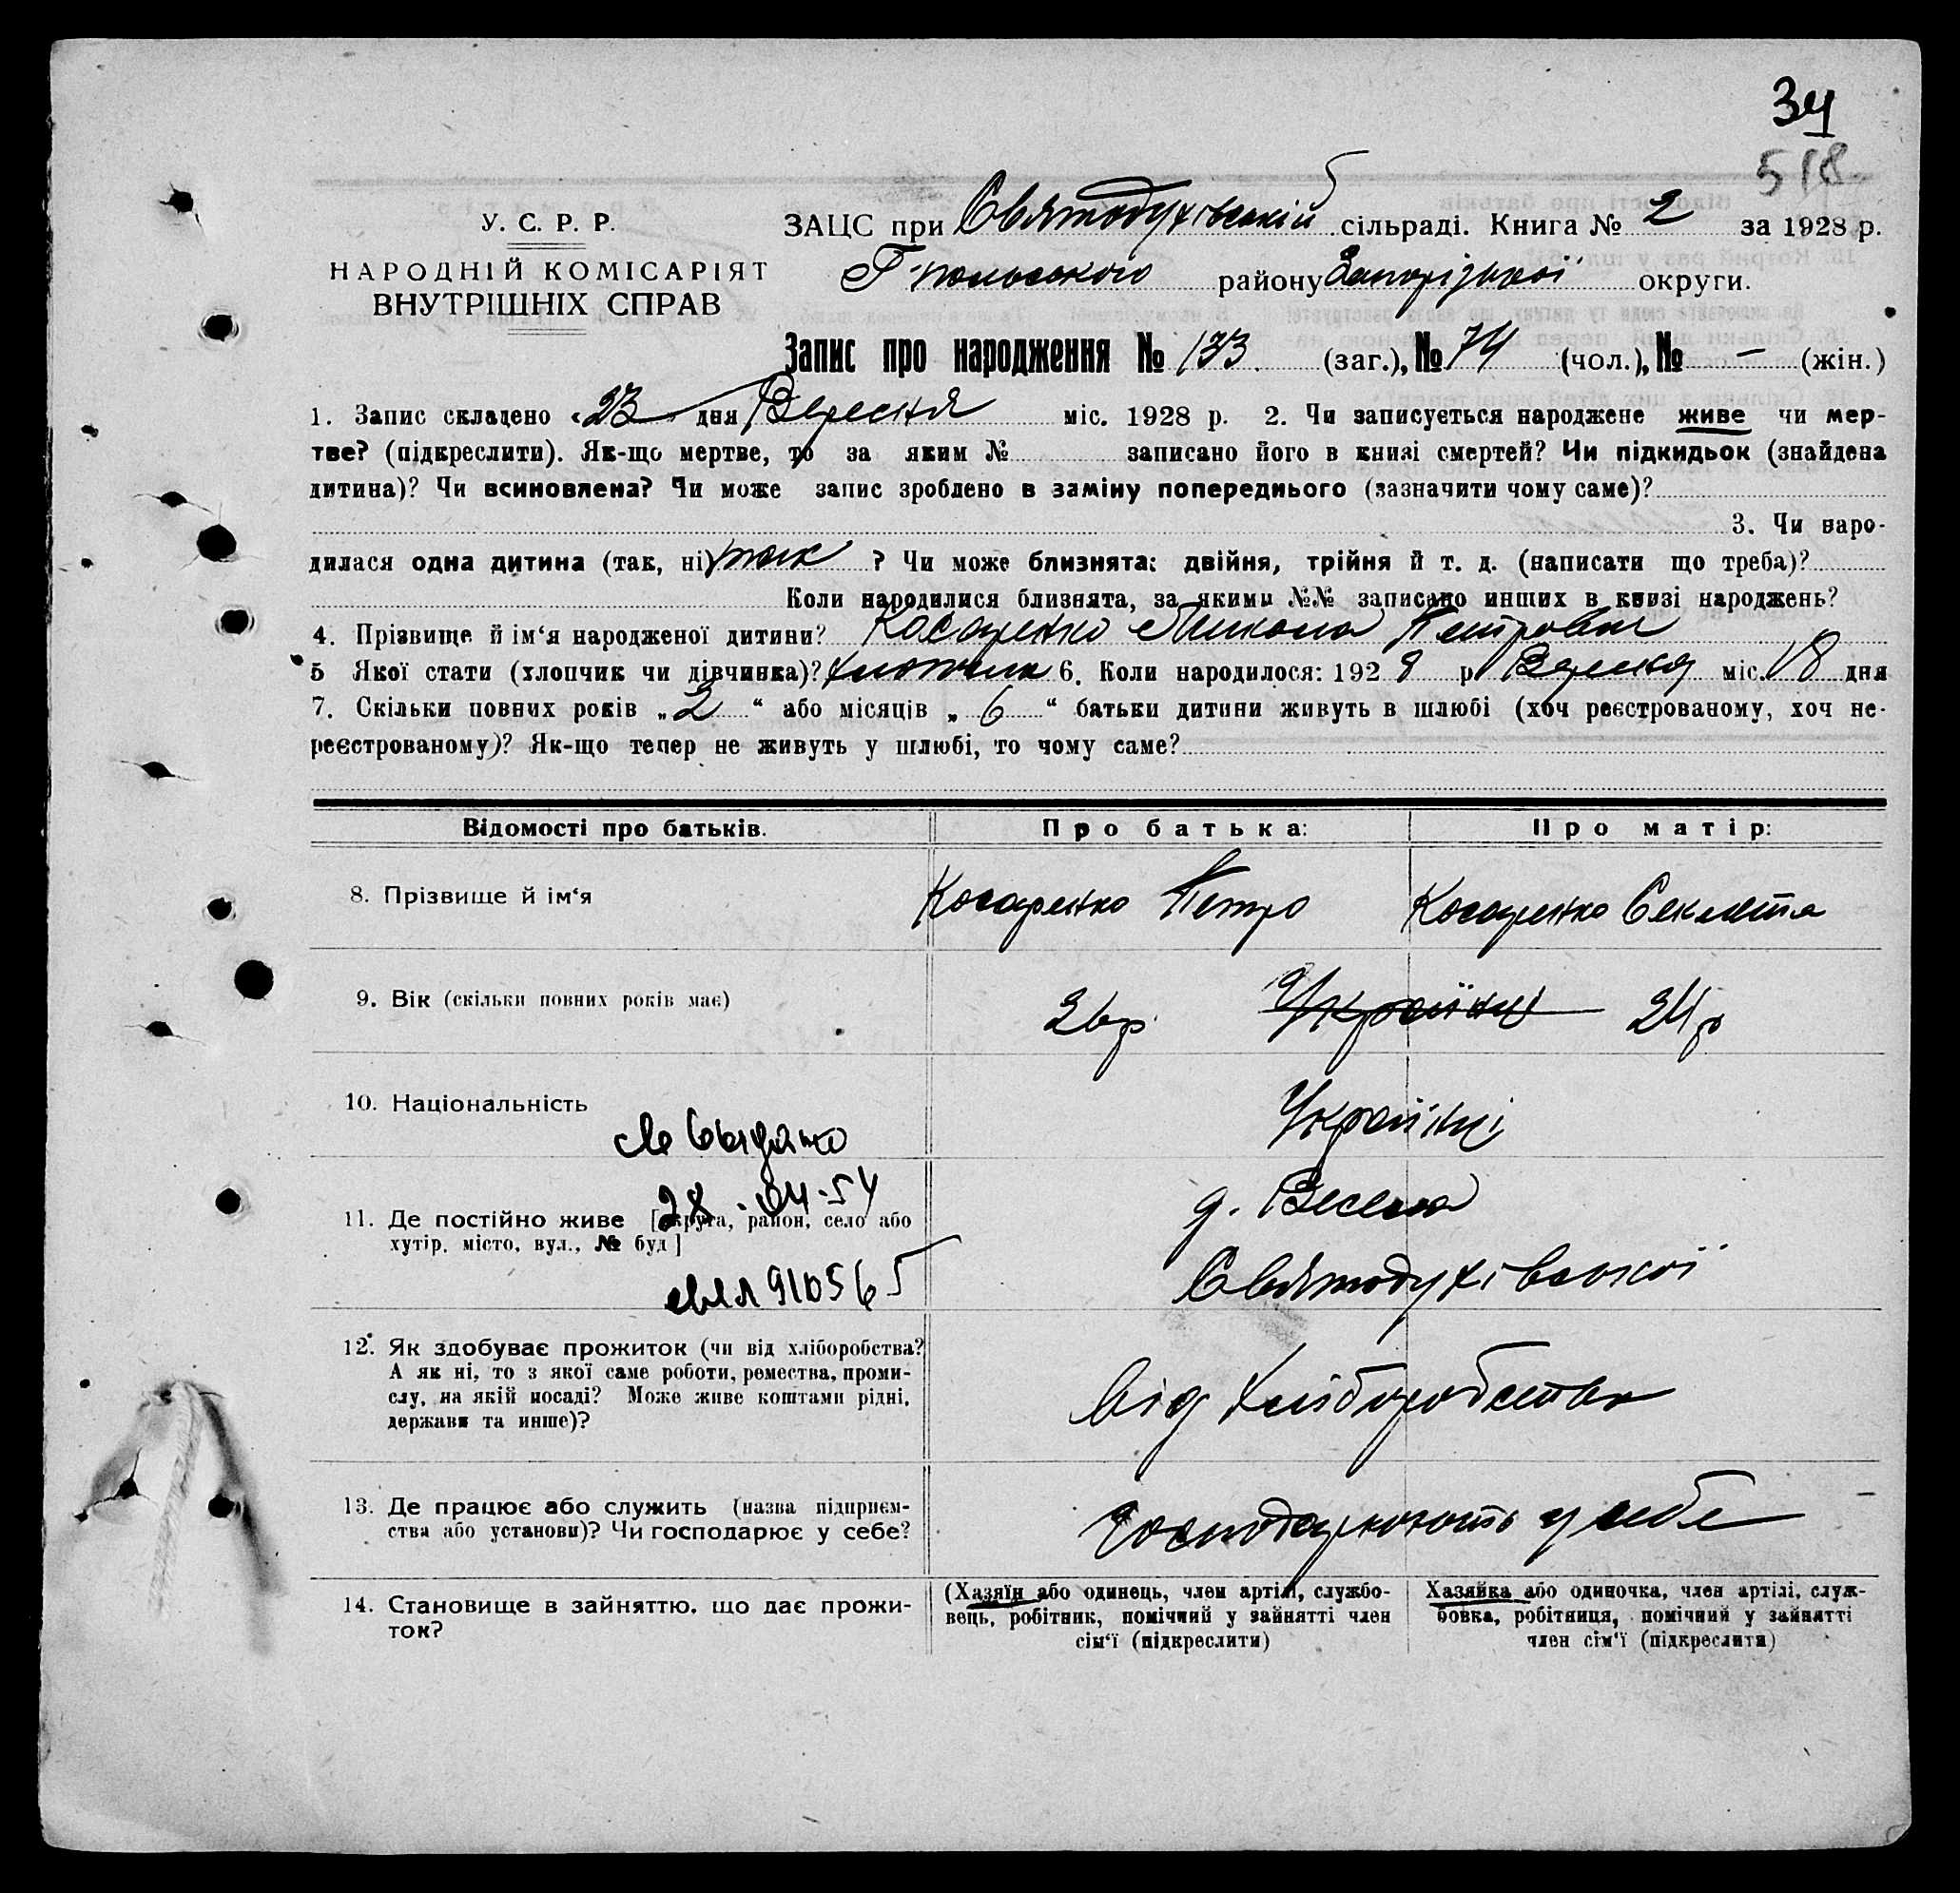 34
518
У. С. Р. Р.
НАРОДНІЙ КОМІСАРІЯТ
ВНУТРІШНІХ СПРАВ
ЗАЦС при Святодухівській сільраді. Книга № 2 за 1928 р.
Г-польського району Запорізької округи.
Запис про народження № 133 (заг.), № 74 (чол.), № — (жін.)
1. Запис складено «23» дня Вересня міс. 1928 р. 2. Чи записується народжене живе чи мер-
тве? (підкреслити). Як-що мертве, то за яким № записано його в книзі смертей? Чи підкидьок (знайдена
дитина)? Чи всиновлена? Чи може запис зроблено в заміну попереднього (зазначити чому саме)?
3. Чи наро-
дилася одна дитина (так, ні) так ? Чи може близнята: двійня, трійня й т. д. (написати що треба)?
Коли народилися близнята, за якими №№ записано инших в книзі народжень?
4. Прізвище й ім‘я народженої дитини? Косаренко Микола Петрович
5 Якої стати (хлопчик чи дівчинка)? хлопчик 6. Коли народилося: 1928 р. Вересня міс. 18 дня
7. Скільки повних років „2“ або місяців „6“ батьки дитини живуть в шлюбі (хоч реєстрованому, хоч не-
реєстрованому)? Як-що тепер не живуть у шлюбі, то чому саме?
Відомості про батьків. Про батька: Про матір:
8. Прізвище й ім‘я Косаренко Петро Косаренко Секлета
9. Вік (скільки повних років має) 26 р. Українці 24 р
10. Національність Українці
св выдано
11. Де постійно живе [округа, район, село або
хутір, місто, вул., № буд] д. Весела
Святодухівської
910565
12. Як здобуває прожиток (чи від хліборобства?
А як ні, то з якої саме роботи, ремества, проми-
слу, на якій посаді? Може живе коштами рідні,
держави та инше)? від хліборобства
13. Де працює або служить (назва підприєм-
ства або установи)? Чи господарює у себе? господарюють у себе
14. Становище в зайняттю, що дає прожи-
ток?
(Хазяїн або одинець, член артілі, службо-
вець, робітник, помічний у зайнятті член
сім‘ї (підкреслити)
Хазяйка або одиночка, член артілі, служ-
бовка, робітниця, помічний у зайнятті
член сім‘ї (підкреслити)